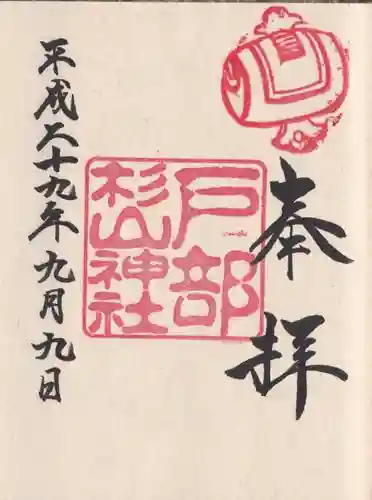 奉拝
戸部
杉山神社
平成二十九年九月九日